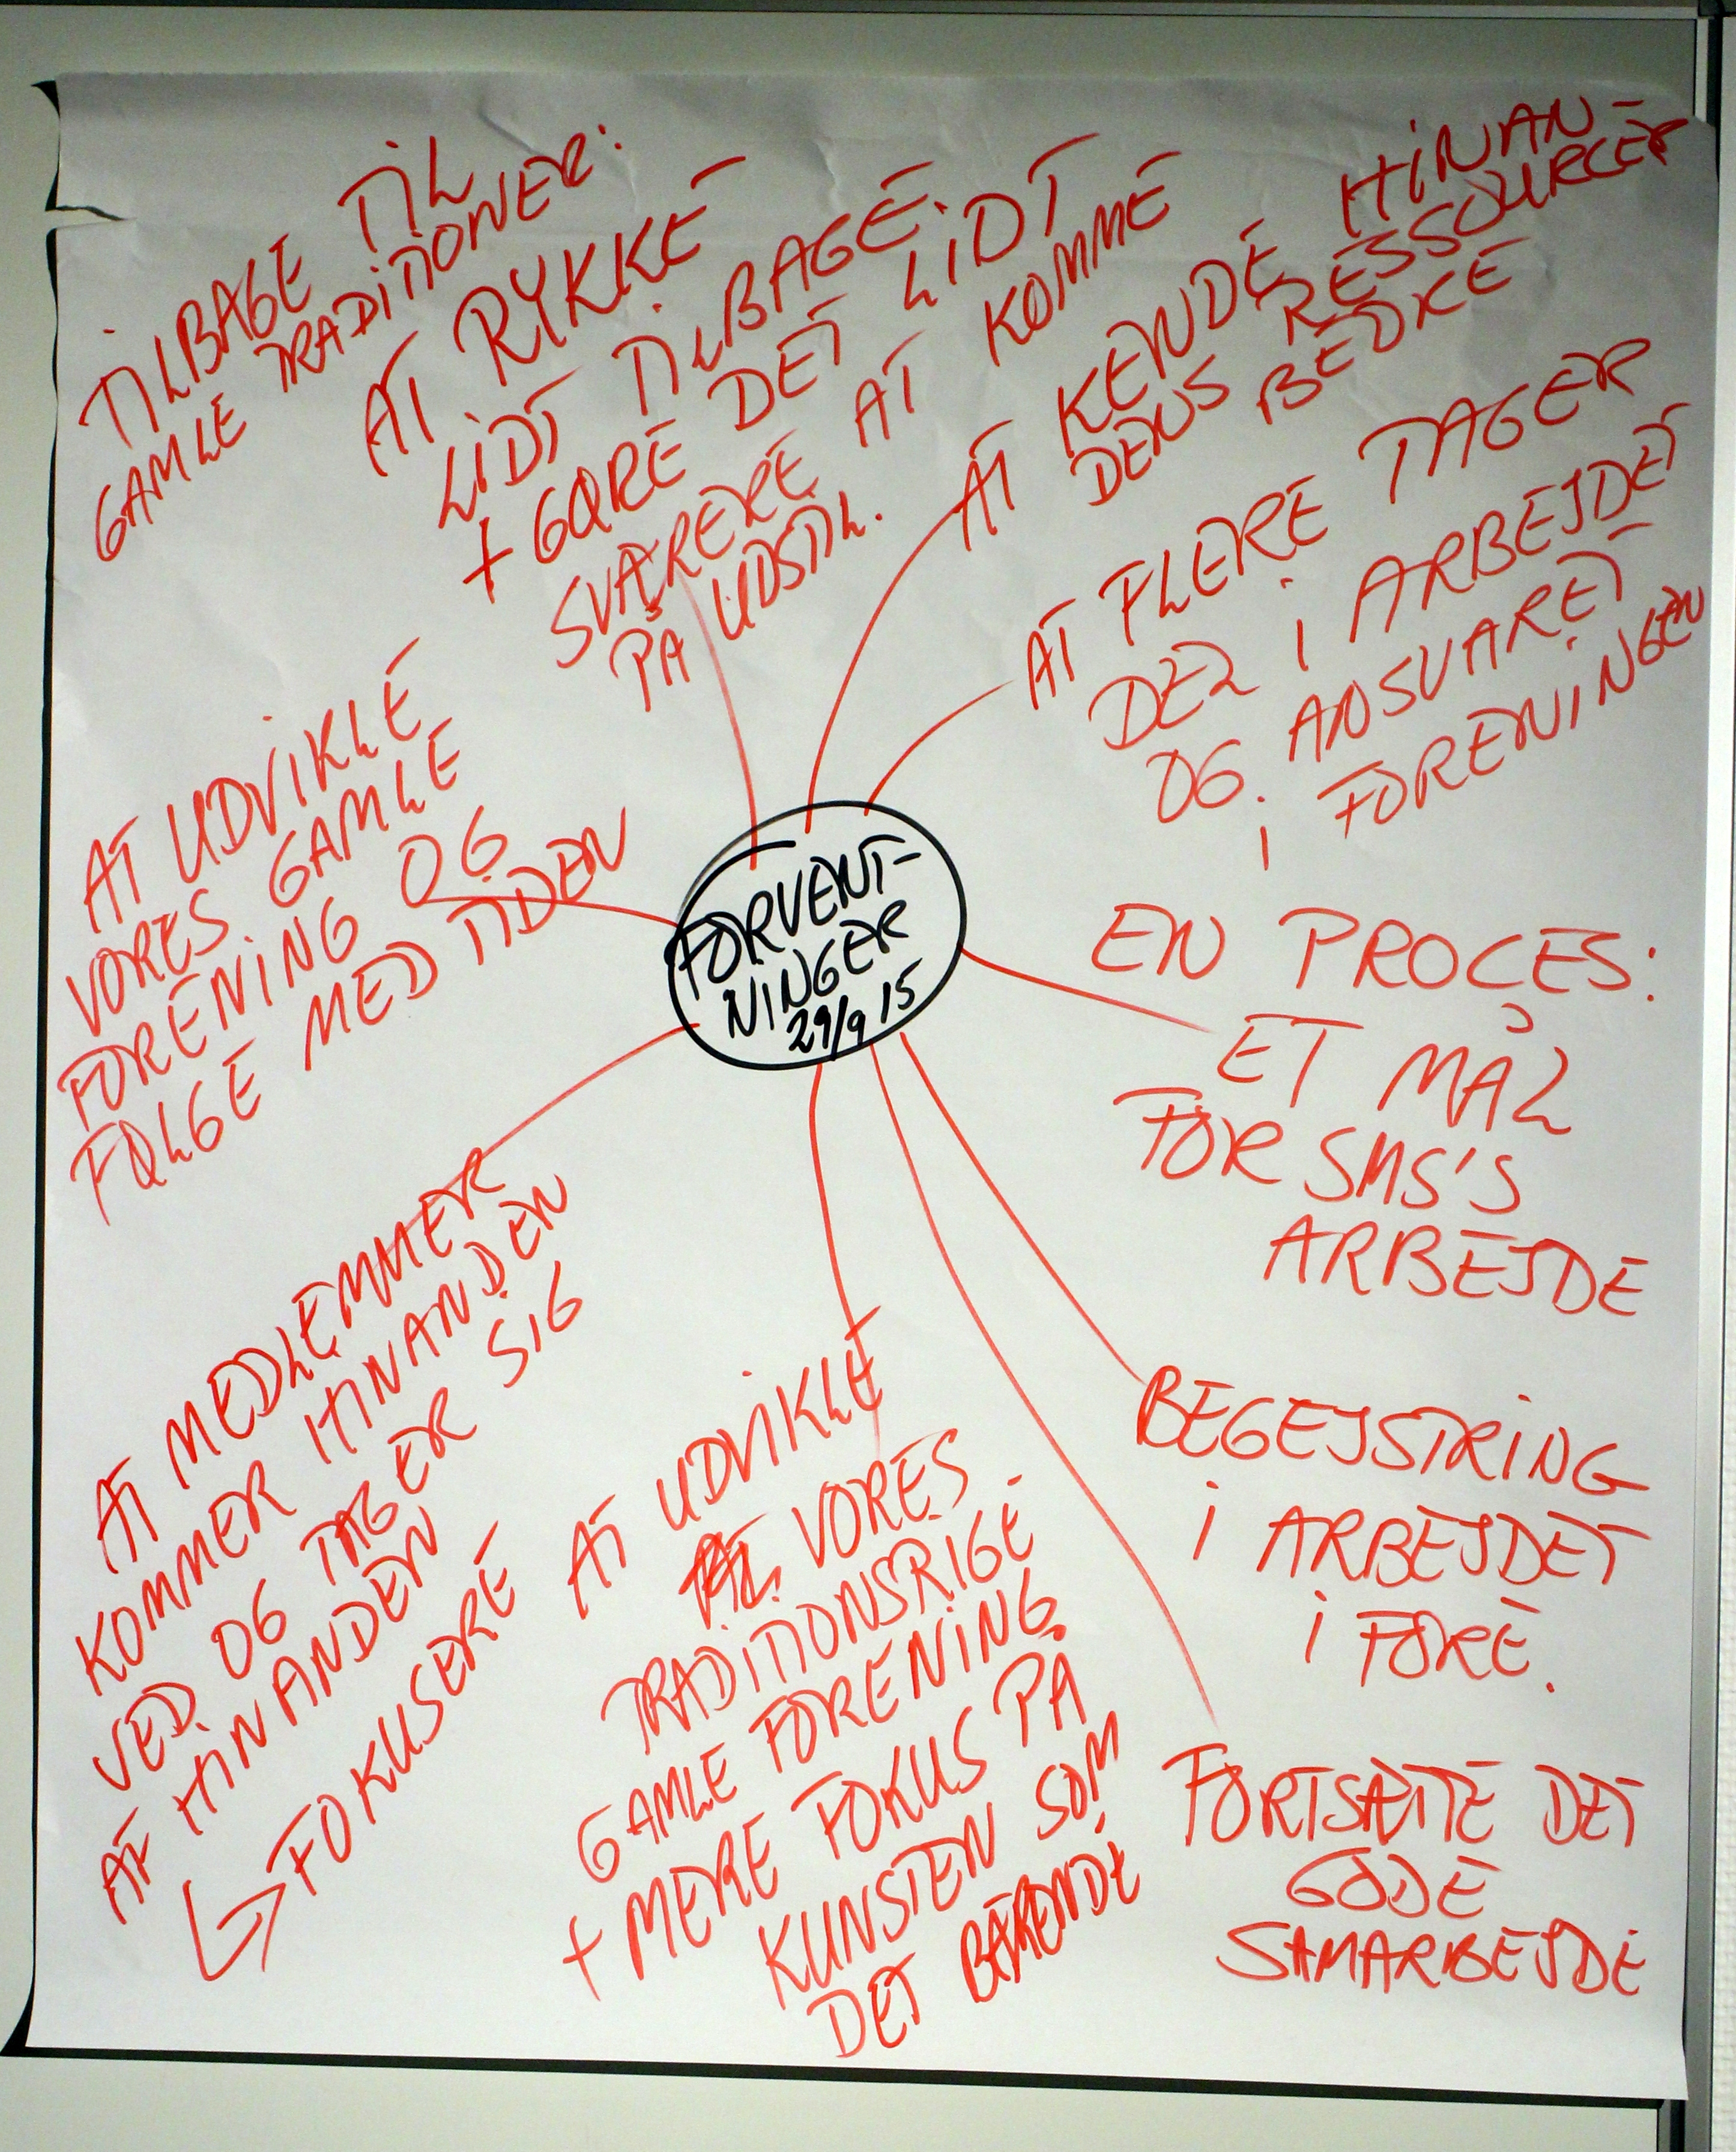 FORVENT-
NINGER
29/9 15
TILBAGE TIL
GAMLE TRADITIONER:
AT RYKKE
LIDT TILBAGE.
+ GØRE DET LIDT
SVÆRERE AT KOMME
PÅ UDSTIL.
AT KENDE HINAN-
DENS RESSOURCER
BEDRE
AT FLERE TAGER
DEL I ARBEJDET
OG ANSVARET
I FORENINGEN
EN PROCES:
ET MÅL
FOR SMS'S
ARBEJDE
BEGEJSTRING
I ARBEJDET
I FORE.
FORTSÆTTE DET
GODE
SAMARBEJDE
AT UDVIKLE
VORES
TRADITIONSRIGE
GAMLE FORENING
+ MERE FOKUS PÅ
KUNSTEN SOM
DET BÆRENDE
AT MEDLEMMER
KOMMER HINANDEN
VED OG TAGER SIG
AF HINANDEN
FOKUSERE
AT UDVIKLE
VORES GAMLE
FORENING OG
FØLGE MED TIDEN